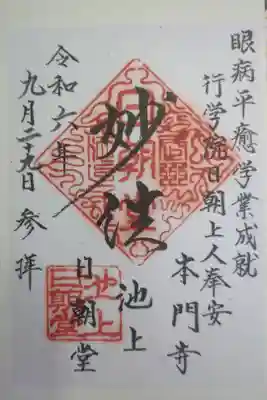 眼病平癒学業成就
行学院日朝上人奉安
本門寺
妙法
池上
日朝堂
令和六年
九月二十九日 参拝